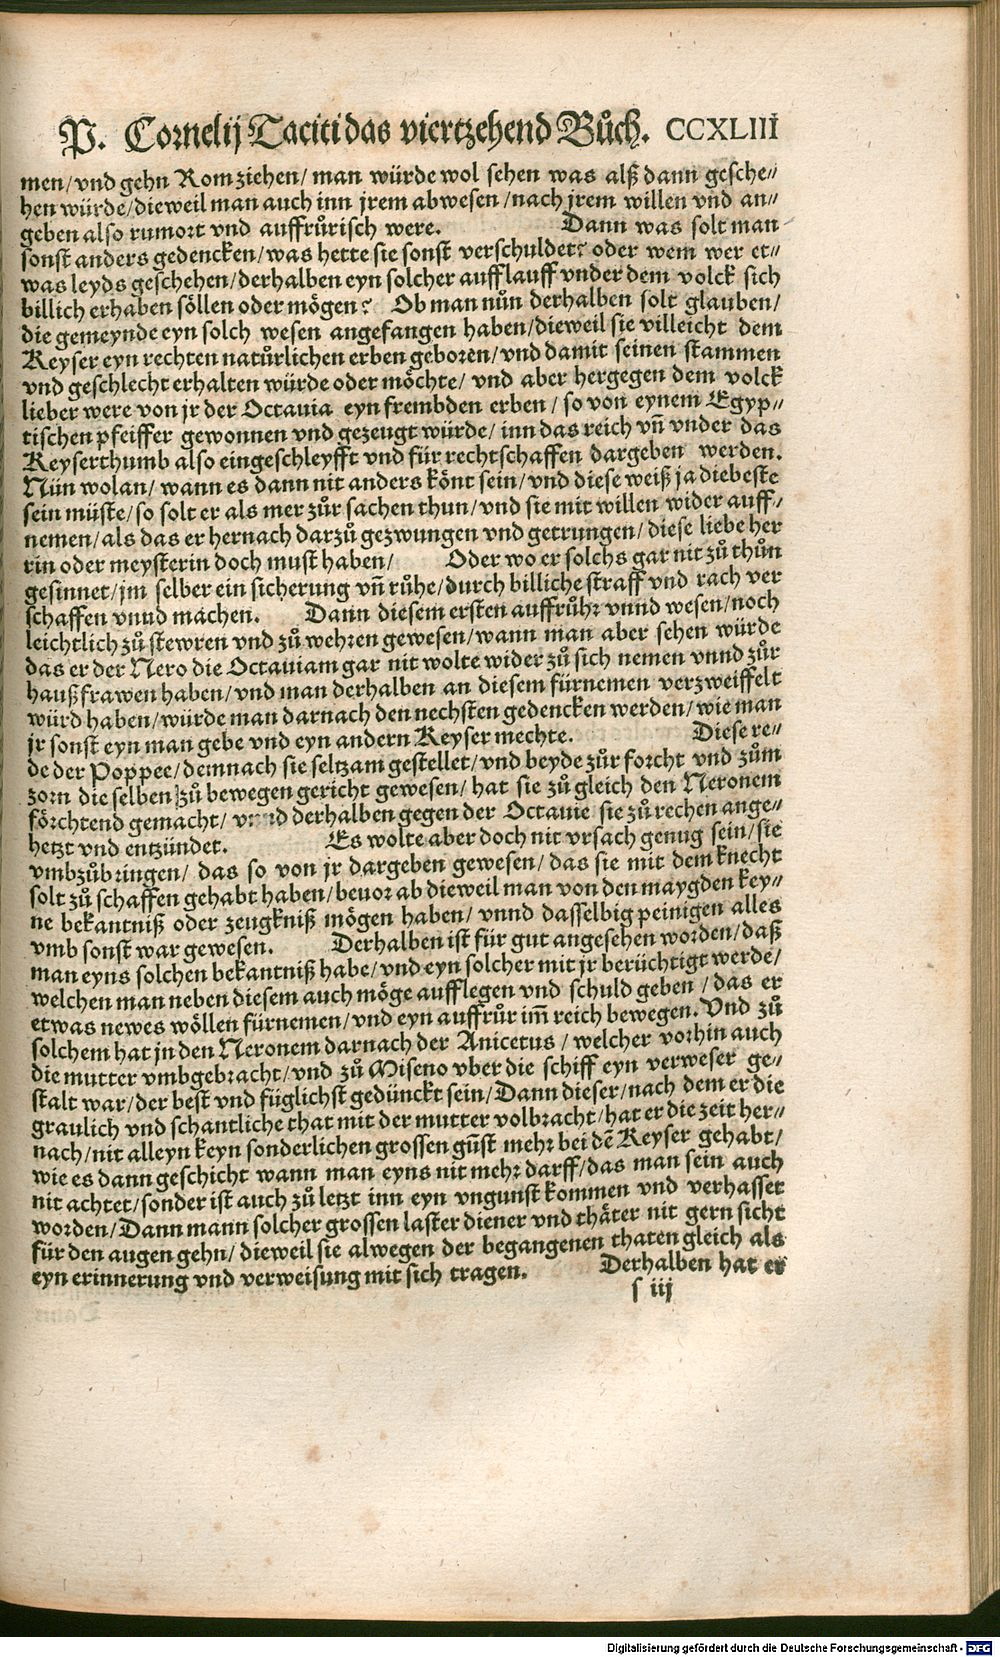 P. Cornelij Taciti das viertzehend Bůch. CCXLIII
men/vnd gehn Rom ziehen/ man würde wol sehen was alß dann gesche⸗
hen würde/dieweil man auch inn jrem abwesen /nach jrem willen vnd an⸗
geben also rumort vnd auffrůrisch were. Dann was solt man
sonst anders gedencken/was hette sie sonst verschuldet? oder wem wer et⸗
was leyds geschehen/derhalben eyn solcher aufflauff vnder dem volck sich
billich erhaben söllen oder mögen? Ob man nůn derhalben solt glauben/
die gemeynde eyn solch wesen angefangen haben/dieweil sie villeicht dem
Keyser eyn rechten natůrlichen erben geboren/vnd damit seinen stammen
vnd geschlecht erhalten würde oder möchte/ vnd aber hergegen dem volck
lieber were von jr der Octauia eyn frembden erben / so von eynem Egyp⸗
tischen pfeiffer gewonnen vnd gezeugt würde/ inn das reich vñ vnder das
Keyserthumb also eingeschleyfft vnd für rechtschaffen dargeben werden.
Nün wolan/ wann es dann nit anders könt sein/vnd diese weiß ja die beste
sein müste/so solt er als mer zůr sachen thun/vnd sie mit willen wider auff⸗
nemen/als das er hernach darzů gezwungen vnd getrungen/diese liebe her
rin oder meysterin doch must haben/ Oder wo er solchs gar nit zů thůn
gesinnet/jm selber ein sicherung vñ růhe/durch billiche straff vnd rach ver
schaffen vnnd machen. Dann diesem ersten auffrůhr vnnd wesen/noch
leichtlich zů stewren vnd zů wehren gewesen/wann man aber sehen würde
das er der Nero die Octauiam gar nit wolte wider zů sich nemen vnnd zůr
haußfrawen haben/vnd man derhalben an diesem fürnemen verzweiffelt
würd haben/würde man darnach den nechsten gedencken werden/wie man
jr sonst eyn man gebe vnd eyn andern Keyser mechte. Diese re⸗
de der Poppee/demnach sie seltzam gestellet/vnd beyde zůr forcht vnd zům
zorn die selben zů bewegen gericht gewesen/ hat sie zů gleich den Neronem
förchtend gemacht/ vnnd derhalben gegen der Octauie sie zů rechen ange⸗
hetzt vnd entzündet. Es wolte aber doch nit vrsach genug sein/sie
vmbzůbringen/ das so von jr dargeben gewesen/das sie mit dem knecht
solt zů schaffen gehabt haben/beuor ab dieweil man von den maygden key⸗
ne bekantniß oder zeugkniß mögen haben/vnnd dasselbig peinigen alles
vmb sonst war gewesen. Derhalben ist für gut angesehen worden/daß
man eyns solchen bekantniß habe/vnd eyn solcher mit jr berüchtigt werde/
welchen man neben diesem auch möge aufflegen vnd schuld geben /das er
etwas newes wöllen fürnemen/vnd eyn auffrůr im̃ reich bewegen. Vnd zů
solchem hat jn den Neronem darnach der Anicetus / welcher vorhin auch
die mutter vmbgebracht/vnd zů Miseno vber die schiff eyn verweser ge⸗
stalt war/der best vnd füglichst gedünckt sein/Dann dieser/nach dem er die
graulich vnd schantliche that mit der mutter volbracht/hat er die zeit her⸗
nach/nit alleyn keyn sonderlichen grossen gũst mehr bei dẽ Keyser gehabt/
wie es dann geschicht wann man eyns nit mehr darff/das man sein auch
nit achtet/sonder ist auch zů letzt inn eyn vngunst kommen vnd verhasset
worden/Dann mann solcher grossen laster diener vnd thäter nit gern sicht
für den augen gehn/dieweil sie alwegen der begangenen thaten gleich als
eyn erinnerung vnd verweisung mit sich tragen. Derhalben hat er
s iij
Digitalisierung gefördert durch die Deutsche Forschungsgemeinschaft - DFG